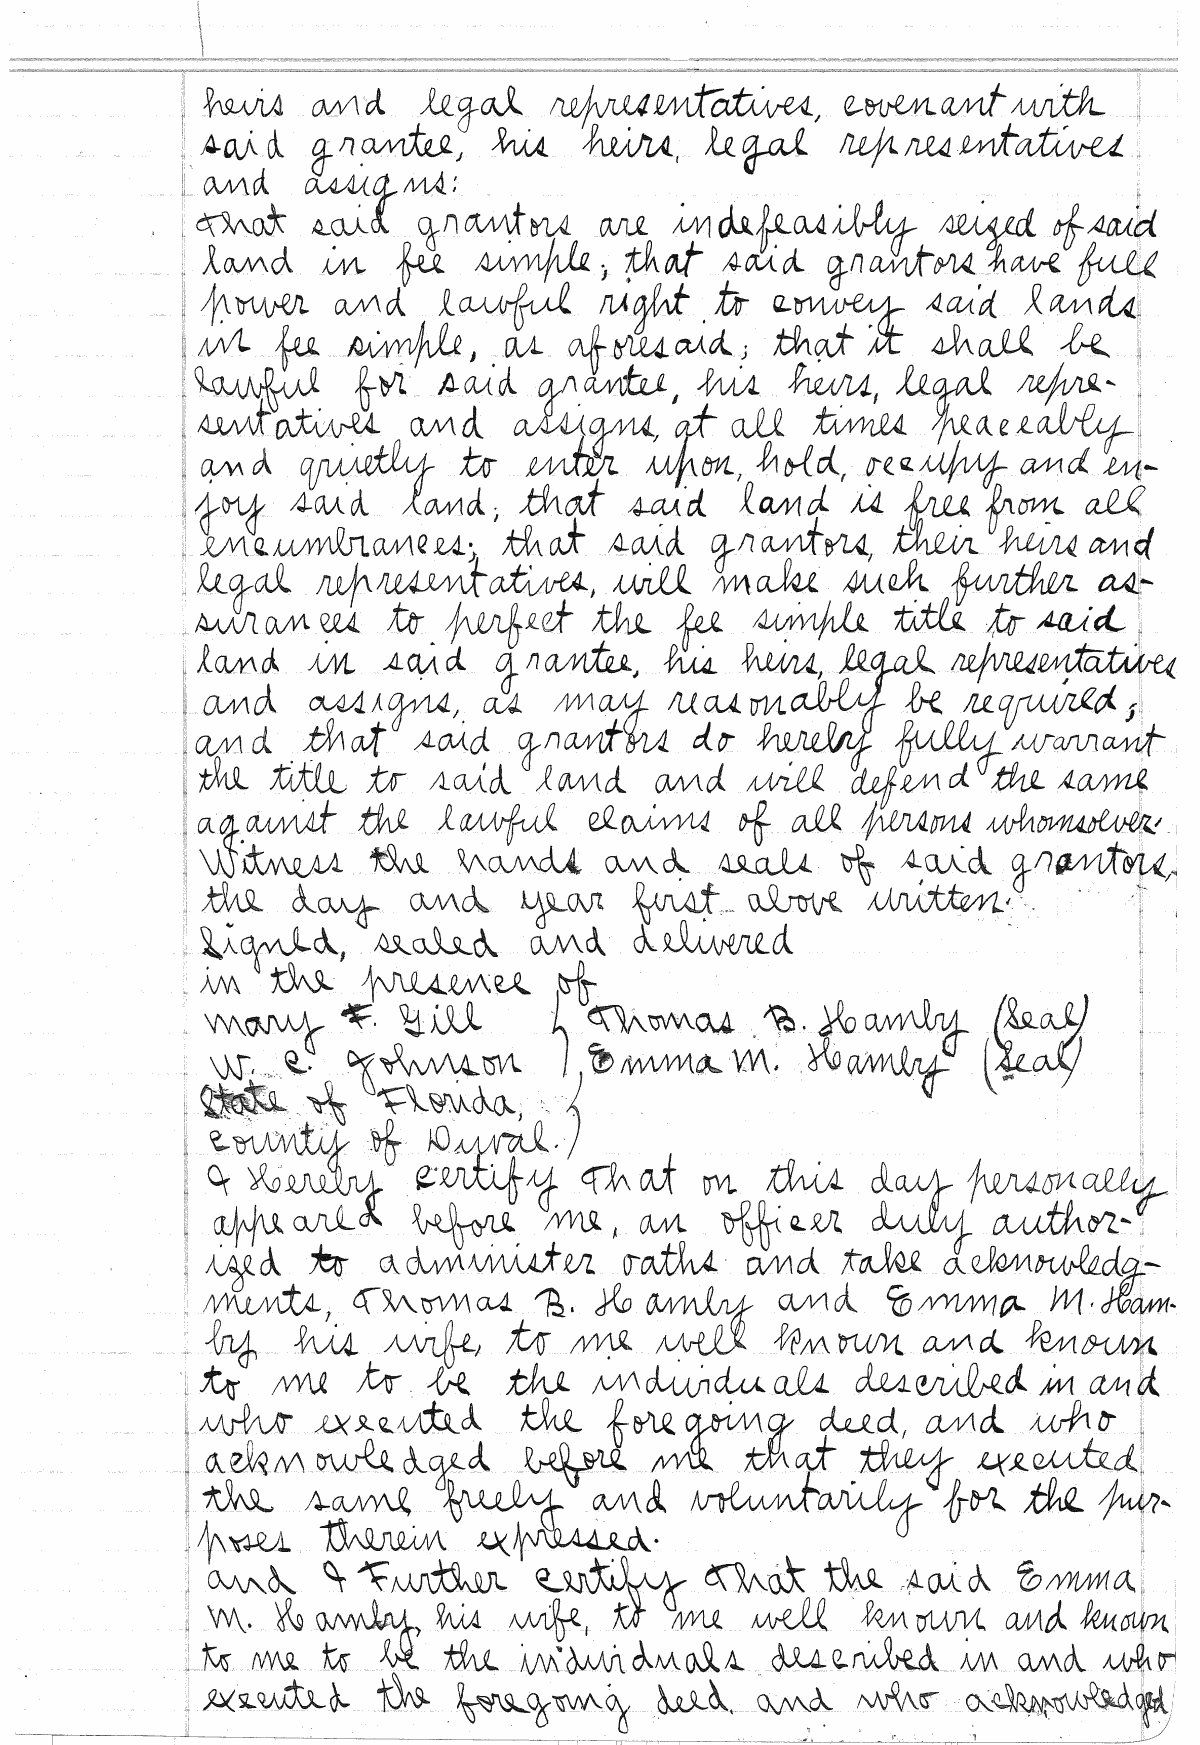 heirs and legal representatives, covenant with
said grantee, his heirs, legal representatives
and assigns:
That said grantors are indefeasibly seized of said
land in fee simple; that said grantors have full
power and lawful right to convey said lands
in fee simple, as aforesaid; that it shall be
lawful for said grantee, his heirs, legal repre-
sentatives and assigns, at all times peaceably
and quietly to enter upon, hold, occupy and en-
joy said land; that said land is free from all
encumbrances; that said grantors, their heirs and
legal representatives, will make such further as-
surances to perfect the fee simple title to said
land in said grantee, his heirs, legal representatives
and assigns, as may reasonably be required;
and that said grantors do hereby fully warrant
the title to said land and will defend the same
against the lawful claims of all persons whomsoever.
Witness the hands and seals of said grantors,
the day and year first above written.
Signed, sealed and delivered
in the presence of
Mary F. Gill } Thomas B. Hamby (Seal)
W. C. Johnson } Emma M. Hamby (Seal)
State of Florida, }
County of Duval. }
I Hereby Certify That on this day personally
appeared before me, an officer duly author-
ized to administer oaths and take acknowledg-
ments, Thomas B. Hamby and Emma M. Ham-
by his wife, to me well known and known
to me to be the individuals described in and
who executed the foregoing deed, and who
acknowledged before me that they executed
the same freely and voluntarily for the pur-
poses therein expressed.
and I Further Certify That the said Emma
M. Hamby, his wife, to me well known and known
to me to be the individuals described in and who
executed the foregoing deed, and who acknowledged